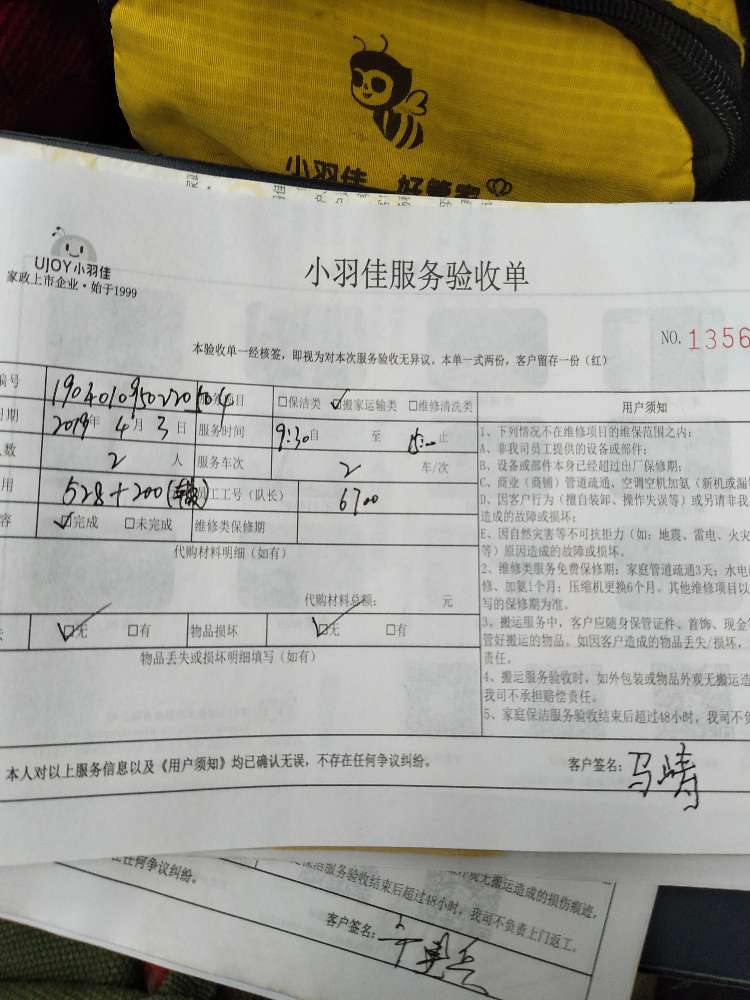 小羽佳 好管家
UJOY小羽佳
家政上市企业·始于1999
小羽佳服务验收单
NO. 1356
本验收单一经核签，即视为对本次服务验收无异议。本单一式两份，客户留存一份（红）
编号 1904010950220504 目 □保洁类 ☑搬家运输类 □维修清洗类
日期 2019年 4月 3日 服务时间 9:30自 至 止
人数 2 人 服务车次 2 车/次
用 528+200 员工工号（队长） 6700
容 ☑完成 □未完成 维修类保修期
代购材料明细（如有）
代购材料总额： 元
☑无 □有 物品损坏 ☑无 □有
物品丢失或损坏明细填写（如有）
用户须知
1、下列情况不在维修项目的维保范围之内：
A、非我司员工提供的设备或部件；
B、设备或部件本身已经超过出厂保修期；
C、商业（商铺）管道疏通，空调空机加氨（新机或漏
D、因客户行为（擅自装卸、操作失误等）或另请非我
造成的故障或损坏；
E、因自然灾害等不可抗拒力（如：地震、雷电、火灾
等）原因造成的故障或损坏。
2、维修类服务免费保修期：家庭管道疏通3天；水电
修、加氨1个月；压缩机更换6个月。其他维修项目以
写的保修期为准。
3、搬运服务中，客户应随身保管证件、首饰、现金
管好搬运的物品。如因客户造成的物品丢失/损坏，
责任。
4、搬运服务验收时，如外包装或物品外观无搬运造
我司不承担赔偿责任。
5、家庭保洁服务验收结束后超过48小时，我司不负
本人对以上服务信息以及《用户须知》均已确认无误，不存在任何争议纠纷。
客户签名：马靖
任何争议纠纷。
观无搬运造成的损伤痕迹，
洁服务验收结束后超过48小时，我司不负责上门返工。
客户签名：